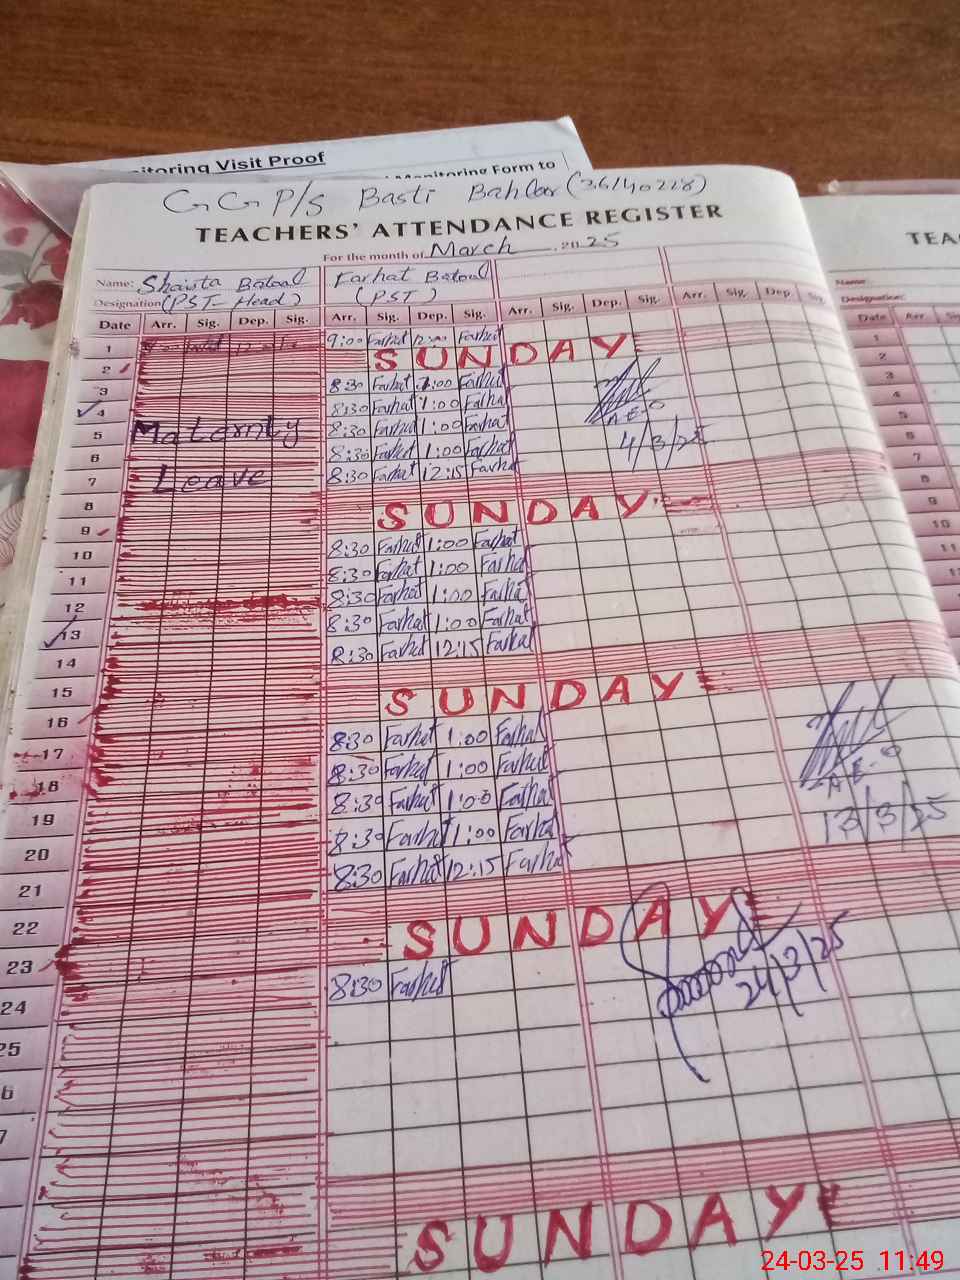 itoring Visit Proof
Monitoring Form to
GGP/S Basti Bahbar (36140228)
TEACHERS' ATTENDANCE REGISTER
For the month of March 2025
Name: Shaista Batool Farhat Batool
Designation (PST-Head) (PST)
Date Arr. Sig. Dep. Sig. Arr. Sig. Dep. Sig. Arr. Sig. Dep. Sig. Arr. Sig. Dep. Sig.
1 9:00 Farhat 12:00 Farhat
2 SUNDAY
3 8:30 Farhat 1:00 Farhat
4 8:30 Farhat 1:00 Farhat
5 8:30 Farhat 1:00 Farhat
6 8:30 Farhat 1:00 Farhat
7 8:30 Farhat 12:15 Farhat
Maternity
Leave
A.E.O
4/3/25
8
9 SUNDAY
10 8:30 Farhat 1:00 Farhat
11 8:30 Farhat 1:00 Farhat
12 8:30 Farhat 1:00 Farhat
13 8:30 Farhat 1:00 Farhat
14 8:30 Farhat 12:15 Farhat
15
16 SUNDAY
17 8:30 Farhat 1:00 Farhat
18 8:30 Farhat 1:00 Farhat
19 8:30 Farhat 1:00 Farhat
20 8:30 Farhat 1:00 Farhat
21 8:30 Farhat 12:15 Farhat
A.E.O
13/3/25
22
23 SUNDAY
24 8:30 Farhat
24/3/25
25
6
7
SUNDAY
TEA
Name:
Designation:
Date Arr Sig.
1
2
3
4
5
6
7
8
9
10
11
12
24-03-25 11:49